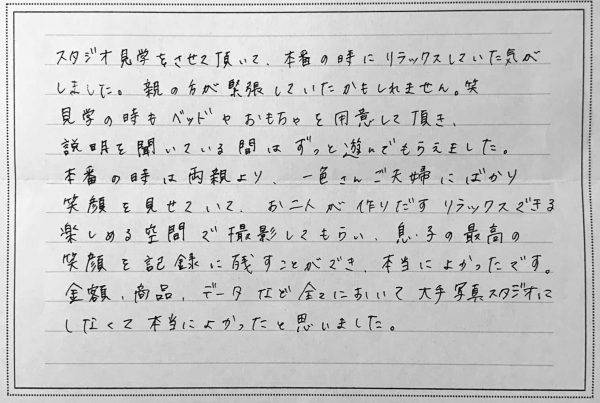 スタジオ見学をさせて頂いて、本番の時にリラックスしていた気が
しました。親の方が緊張していたかもしれません。笑
見学の時もベッドやおもちゃを用意して頂き、
説明を聞いている間はずっと遊んでもらえました。
本番の時は両親より、一色さんご夫婦にばかり
笑顔を見せていて、お二人が作りだすリラックスできる
楽しめる空間で撮影してもらい、息子の最高の
笑顔を記録に残すことができ、本当によかったです。
金額、商品、データなど全てにおいて大手写真スタジオに
しなくて本当によかったと思いました。